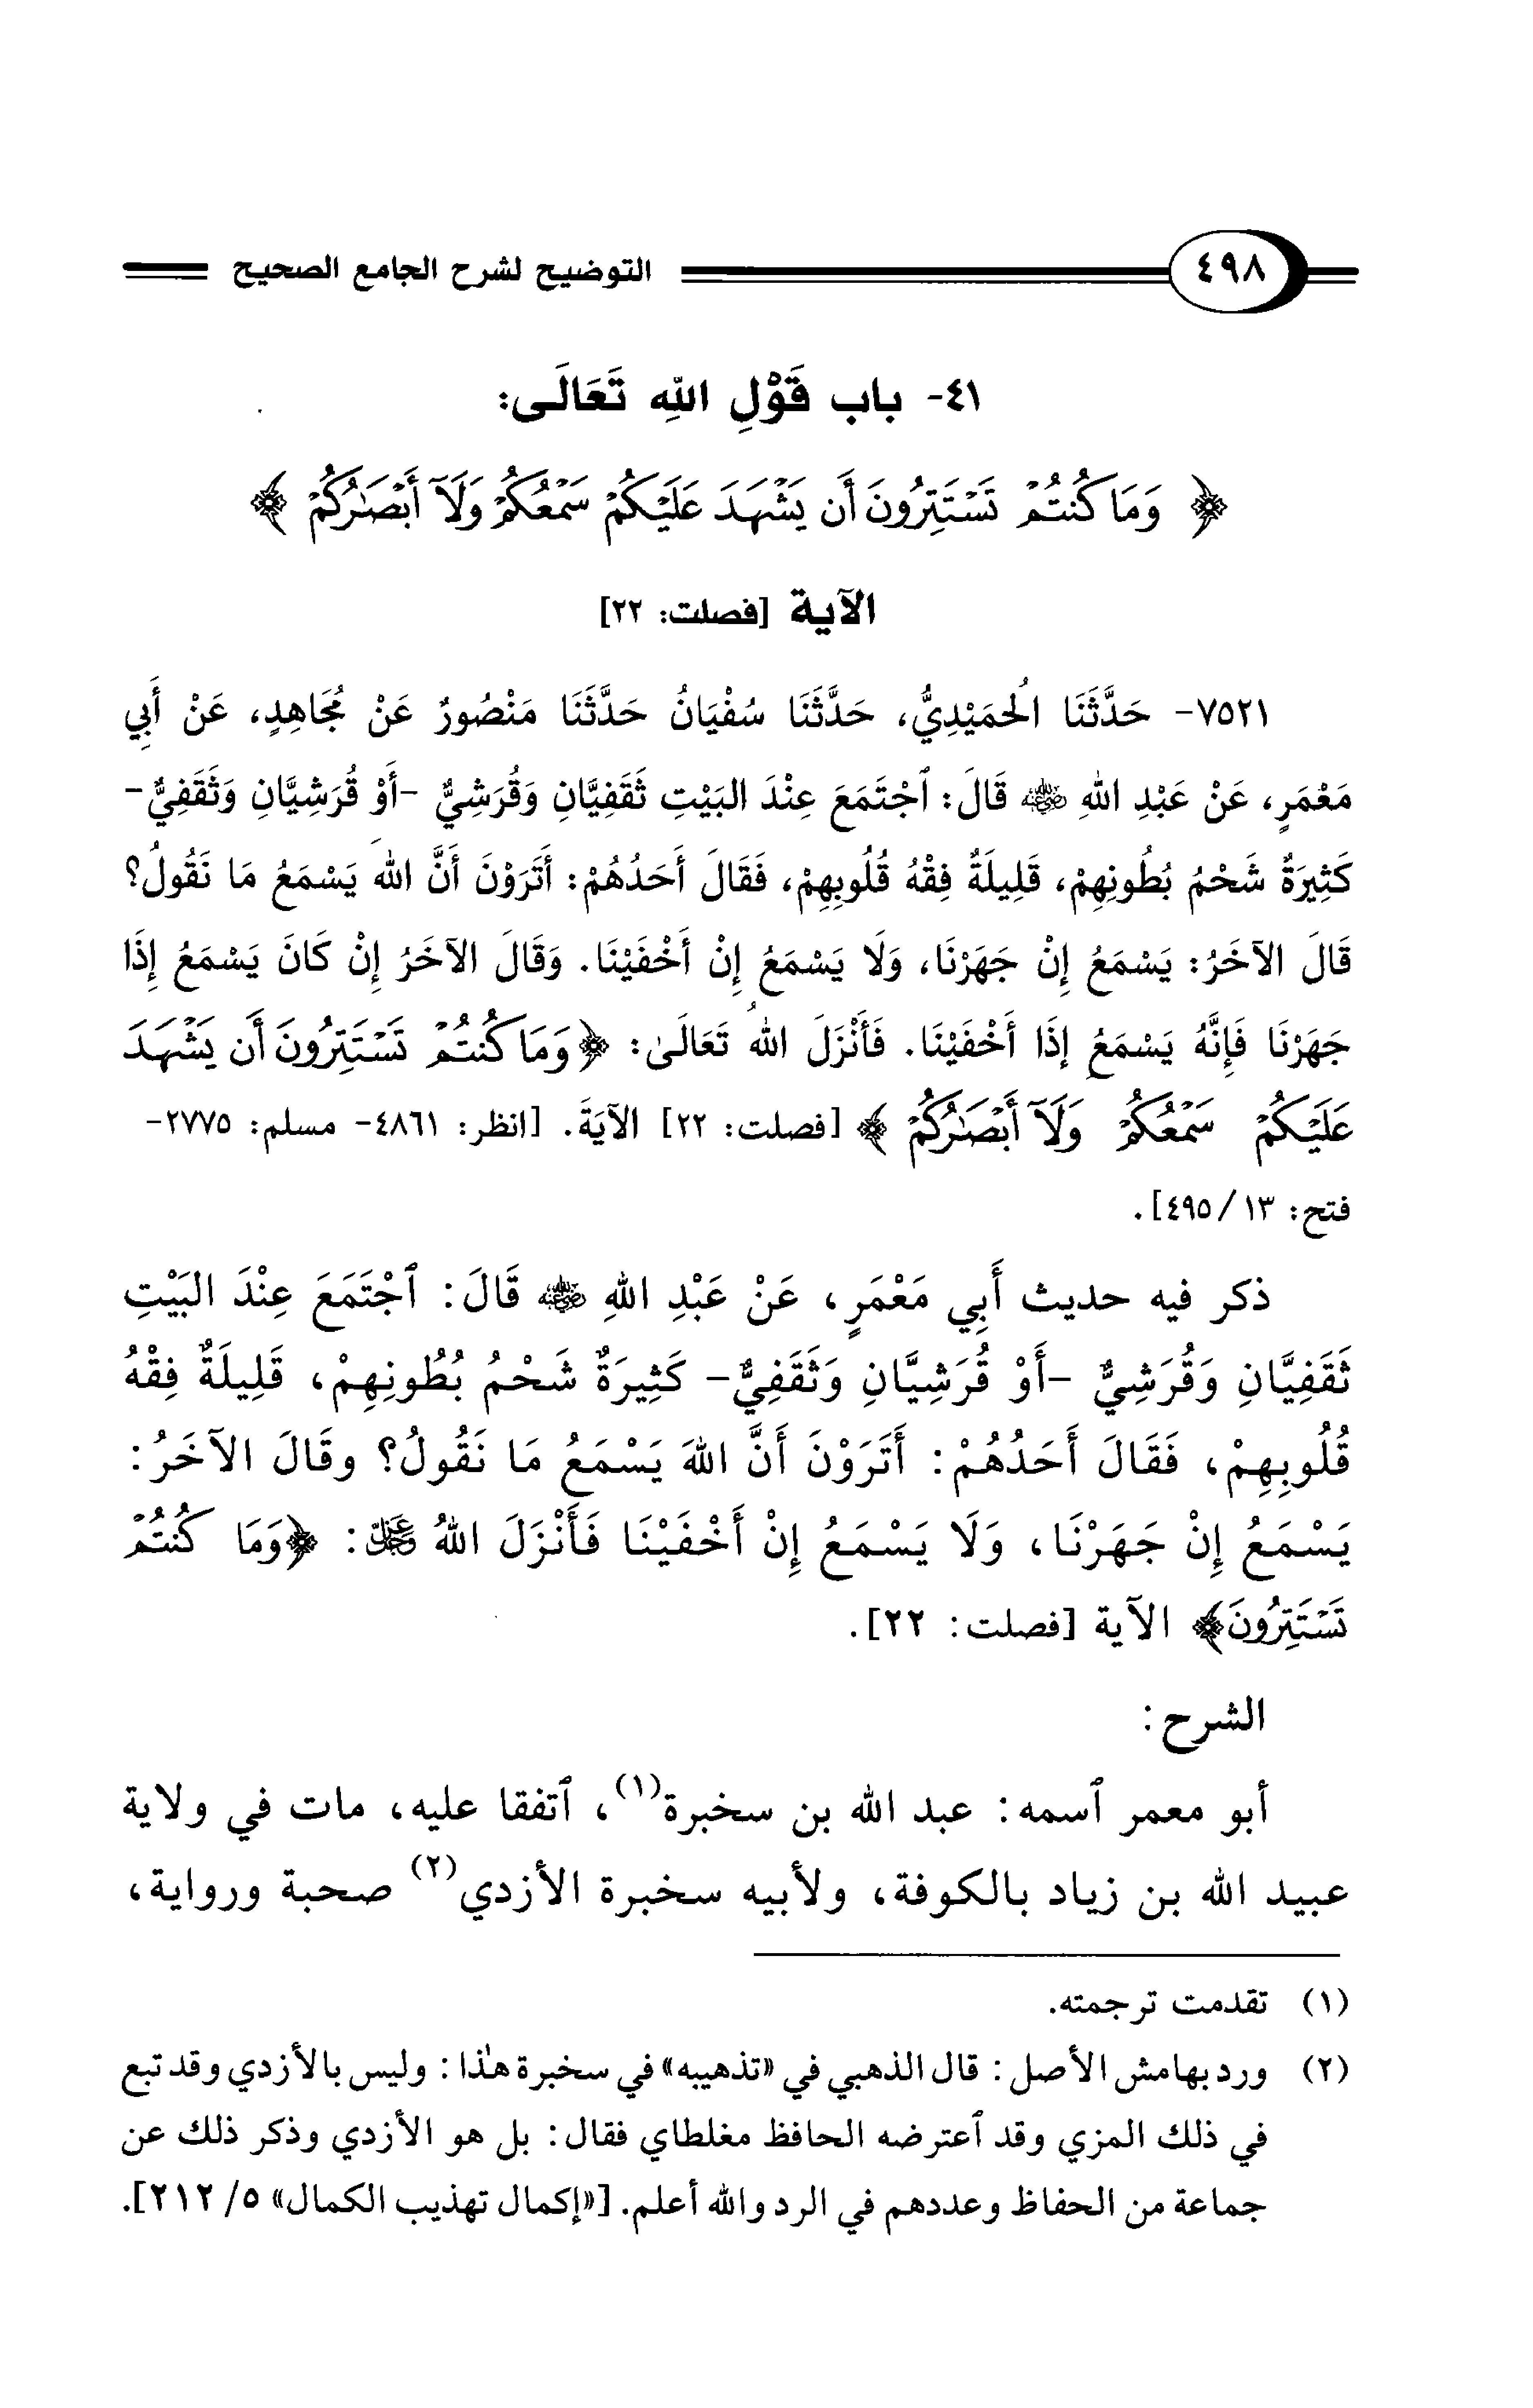 ٤٩٨ التوضيح لشرح الجامع الصحيح
٤١- باب قَوْلِ اللهِ تَعَالَى:
﴿ وَمَا كُنتُمْ تَسْتَتِرُونَ أَن يَشْهَدَ عَلَيْكُمْ سَمْعُكُمْ وَلَآ أَبْصَٰرُكُمْ ﴾
الآية [فصلت: ٢٢]
٧٥٢١- حَدَّثَنَا الُحمَيْدِيُّ، حَدَّثَنَا سُفْيَانُ حَدَّثَنَا مَنْصُورٌ عَنْ مُجَاهِدٍ، عَنْ أَبِي
مَعْمَرٍ، عَنْ عَبْدِ اللهِ ﵁ قَالَ: ٱجْتَمَعَ عِنْدَ البَيْتِ ثَقَفِيَّانِ وَقُرَشِيٌّ -أَوْ قُرَشِيَّانِ وَثَقَفِيٌّ-
كَثِيرَةٌ شَحْمُ بُطُونِهِمْ، قَلِيلَةٌ فِقْهُ قُلُوبِهِمْ، فَقَالَ أَحَدُهُمْ: أَتَرَوْنَ أَنَّ اللهَ يَسْمَعُ مَا نَقُولُ؟
قَالَ الآخَرُ: يَسْمَعُ إِنْ جَهَرْنَا، وَلَا يَسْمَعُ إِنْ أَخْفَيْنَا. وَقَالَ الآخَرُ إِنْ كَانَ يَسْمَعُ إِذَا
جَهَرْنَا فَإِنَّهُ يَسْمَعُ إِذَا أَخْفَيْنَا. فَأَنْزَلَ اللهُ تَعَالَىٰ: ﴿وَمَا كُنتُمْ تَسْتَتِرُونَ أَن يَشْهَدَ
عَلَيْكُمْ سَمْعُكُمْ وَلَآ أَبْصَٰرُكُمْ ﴾ [فصلت: ٢٢] الآيَةَ. [انظر: ٤٨٦١- مسلم: ٢٧٧٥-
فتح: ١٣/ ٤٩٥].
ذكر فيه حديث أَبِي مَعْمَرٍ، عَنْ عَبْدِ اللهِ ﵁ قَالَ: ٱجْتَمَعَ عِنْدَ البَيْتِ
ثَقَفِيَّانِ وَقُرَشِيٌّ -أَوْ قُرَشِيَّانِ وَثَقَفِيٌّ- كَثِيرَةٌ شَحْمُ بُطُونِهِمْ، قَلِيلَةٌ فِقْهُ
قُلُوبِهِمْ، فَقَالَ أَحَدُهُمْ: أَتَرَوْنَ أَنَّ اللهَ يَسْمَعُ مَا نَقُولُ؟ وقَالَ الآخَرُ:
يَسْمَعُ إِنْ جَهَرْنَا، وَلَا يَسْمَعُ إِنْ أَخْفَيْنَا فَأَنْزَلَ اللهُ ﷿: ﴿وَمَا كُنتُمْ
تَسْتَتِرُونَ﴾ الآية [فصلت: ٢٢].
الشرح:
أبو معمر ٱسمه: عبد الله بن سخبرة(١)، ٱتفقا عليه، مات في ولاية
عبيد الله بن زياد بالكوفة، ولأبيه سخبرة الأزدي(٢) صحبة ورواية،
(١) تقدمت ترجمته.
(٢) ورد بهامش الأصل: قال الذهبي في «تذهيبه» في سخبرة هٰذا: وليس بالأزدي وقد تبع
في ذلك المزي وقد ٱعترضه الحافظ مغلطاي فقال: بل هو الأزدي وذكر ذلك عن
جماعة من الحفاظ وعددهم في الرد والله أعلم. [«إكمال تهذيب الكمال» ٥/ ٢١٢].